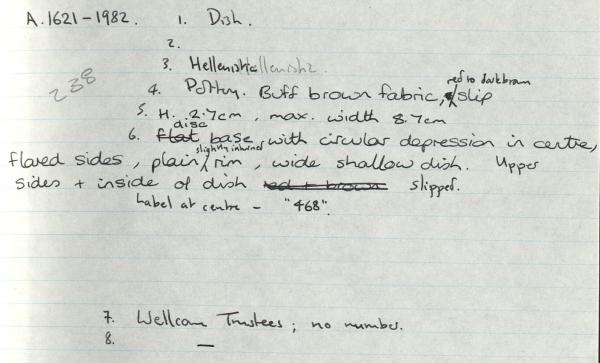 A.1621-1982. 1. Dish.
2.
238
3. Hellenistic Hellenistic
4. Pottery. Buff brown fabric, red to dark brown slip
5. H. 2.7cm, max. width 8.7cm
6. flat disc base, with circular depression in centre,
flared sides, plain slightly inturned rim, wide shallow dish. Upper
sides + inside of dish red + brown slipped.
Label at centre - "468".
7. Wellcom Trustees; no number.
8. —